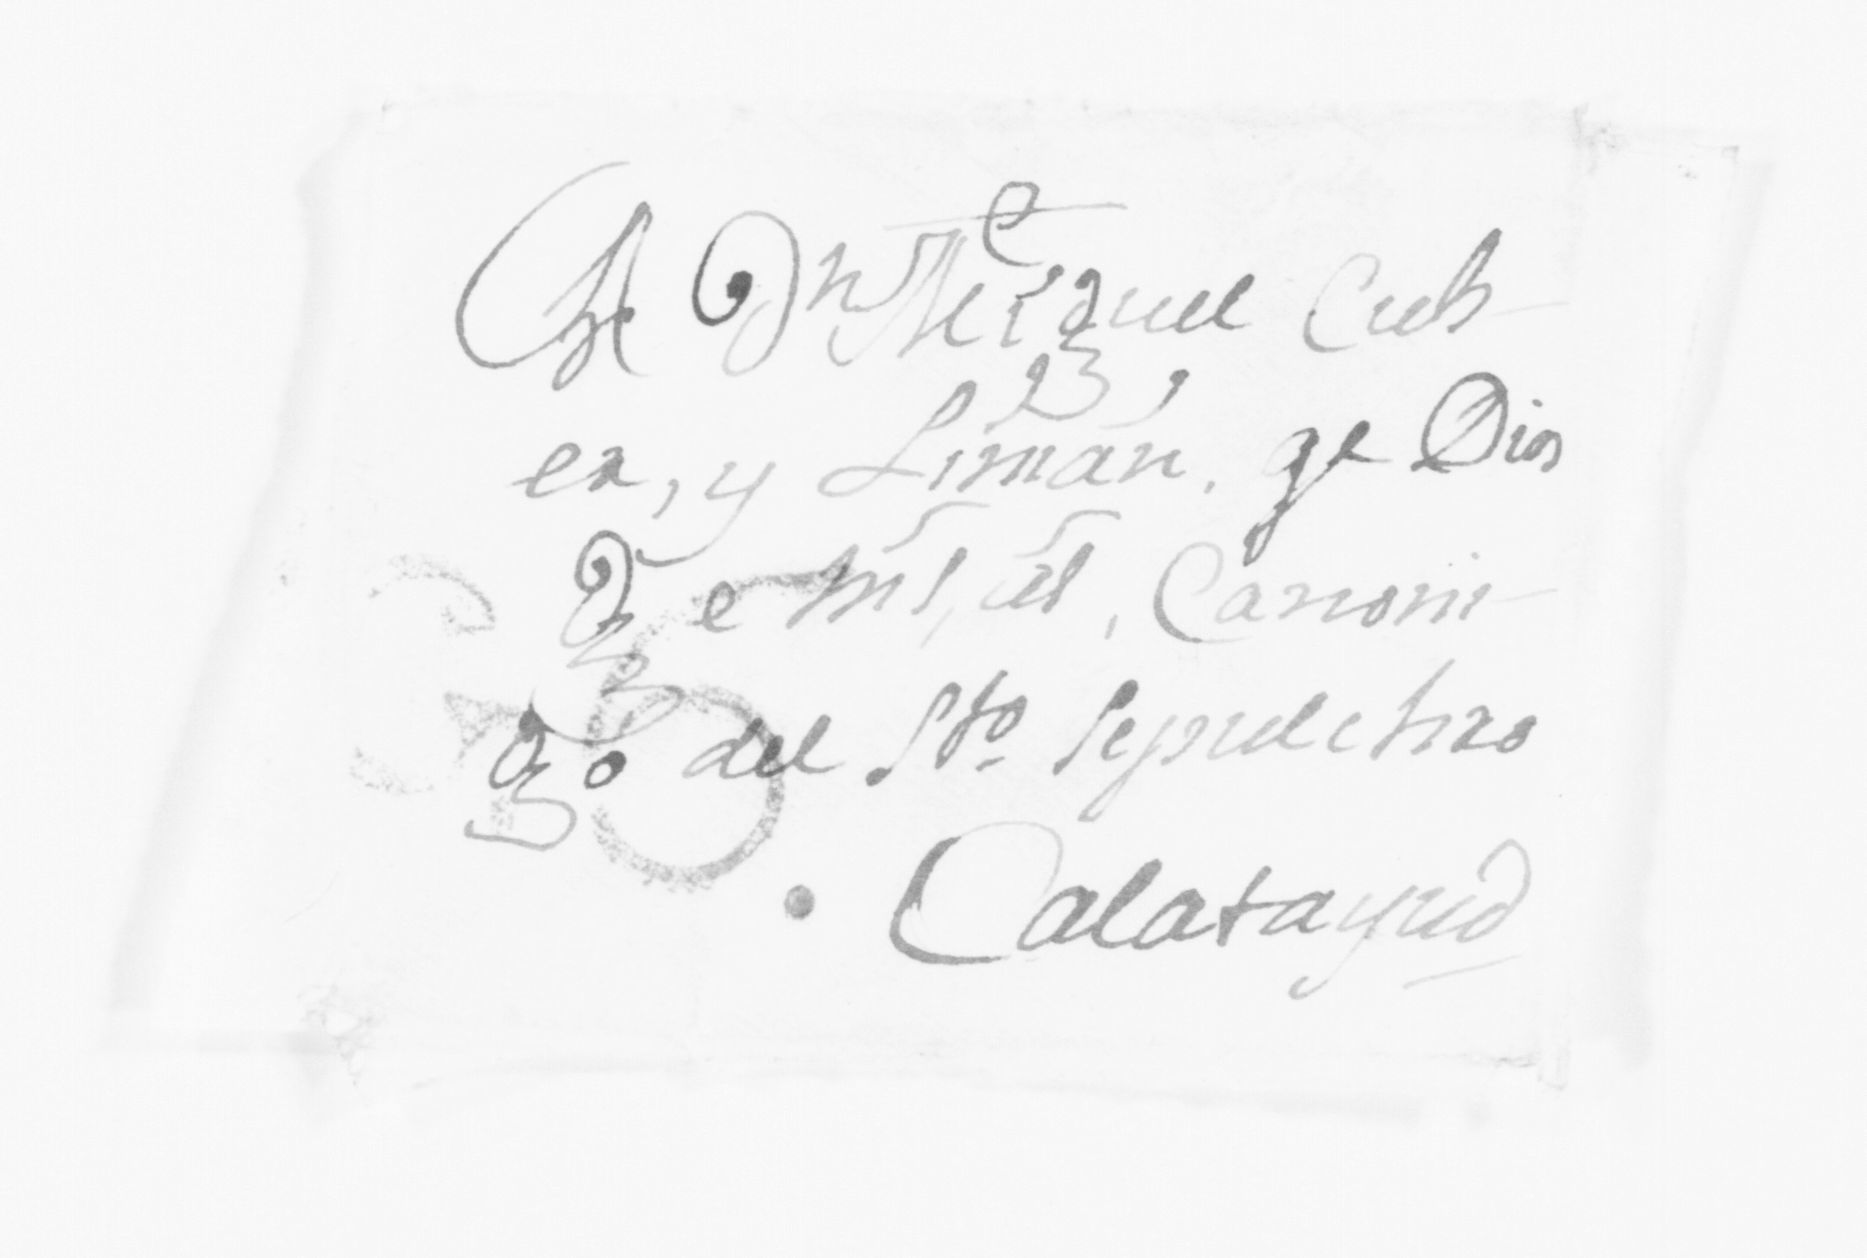 A Dn Miguel Cub-
er, y Liñán, qe Dios
Ge ms, as, Canoni-
go del Sto. Sepulchro
Calatayud